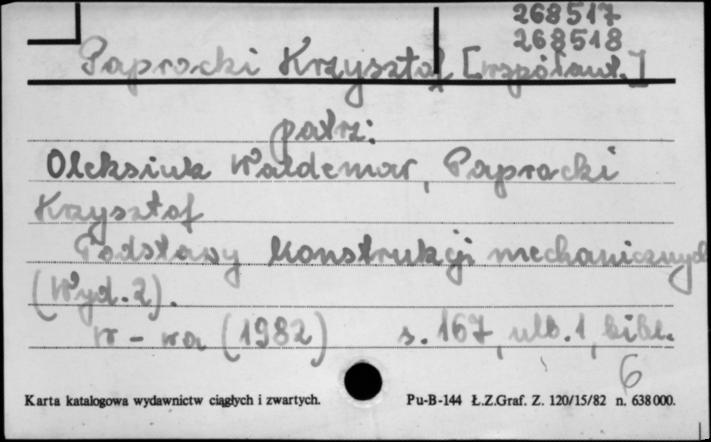 268517
268518
Paprocki Krzysztof [współaut.]
patrz:
Oleksiuk Waldemar, Paprocki
Krzysztof
Podstawy konstrukcji mechanicznych
(Wyd. 2).
W-wa (1982) s. 167, nlb. 1, bibl.
6
Karta katalogowa wydawnictw ciągłych i zwartych. Pu-B-144 Ł.Z.Graf. Z. 120/15/82 n. 638000.